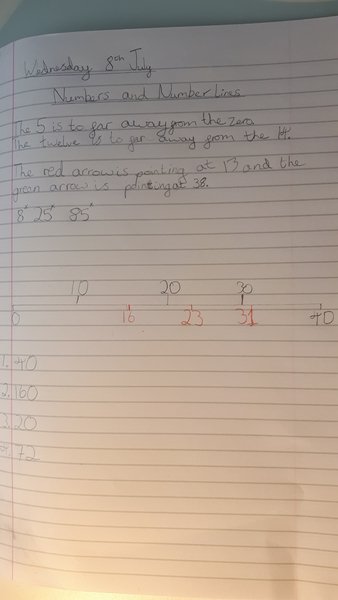 Wednesday 8th July
Numbers and Number lines
The 5 is to far away from the zero.
The twelve is to far away from the 14.
The red arrow is pointing at 13 and the
green arrow is pointing at 38.
8 25 85
10 20 30
0 16 23 31 40
1. 40
2. 160
3. 20
4. 72